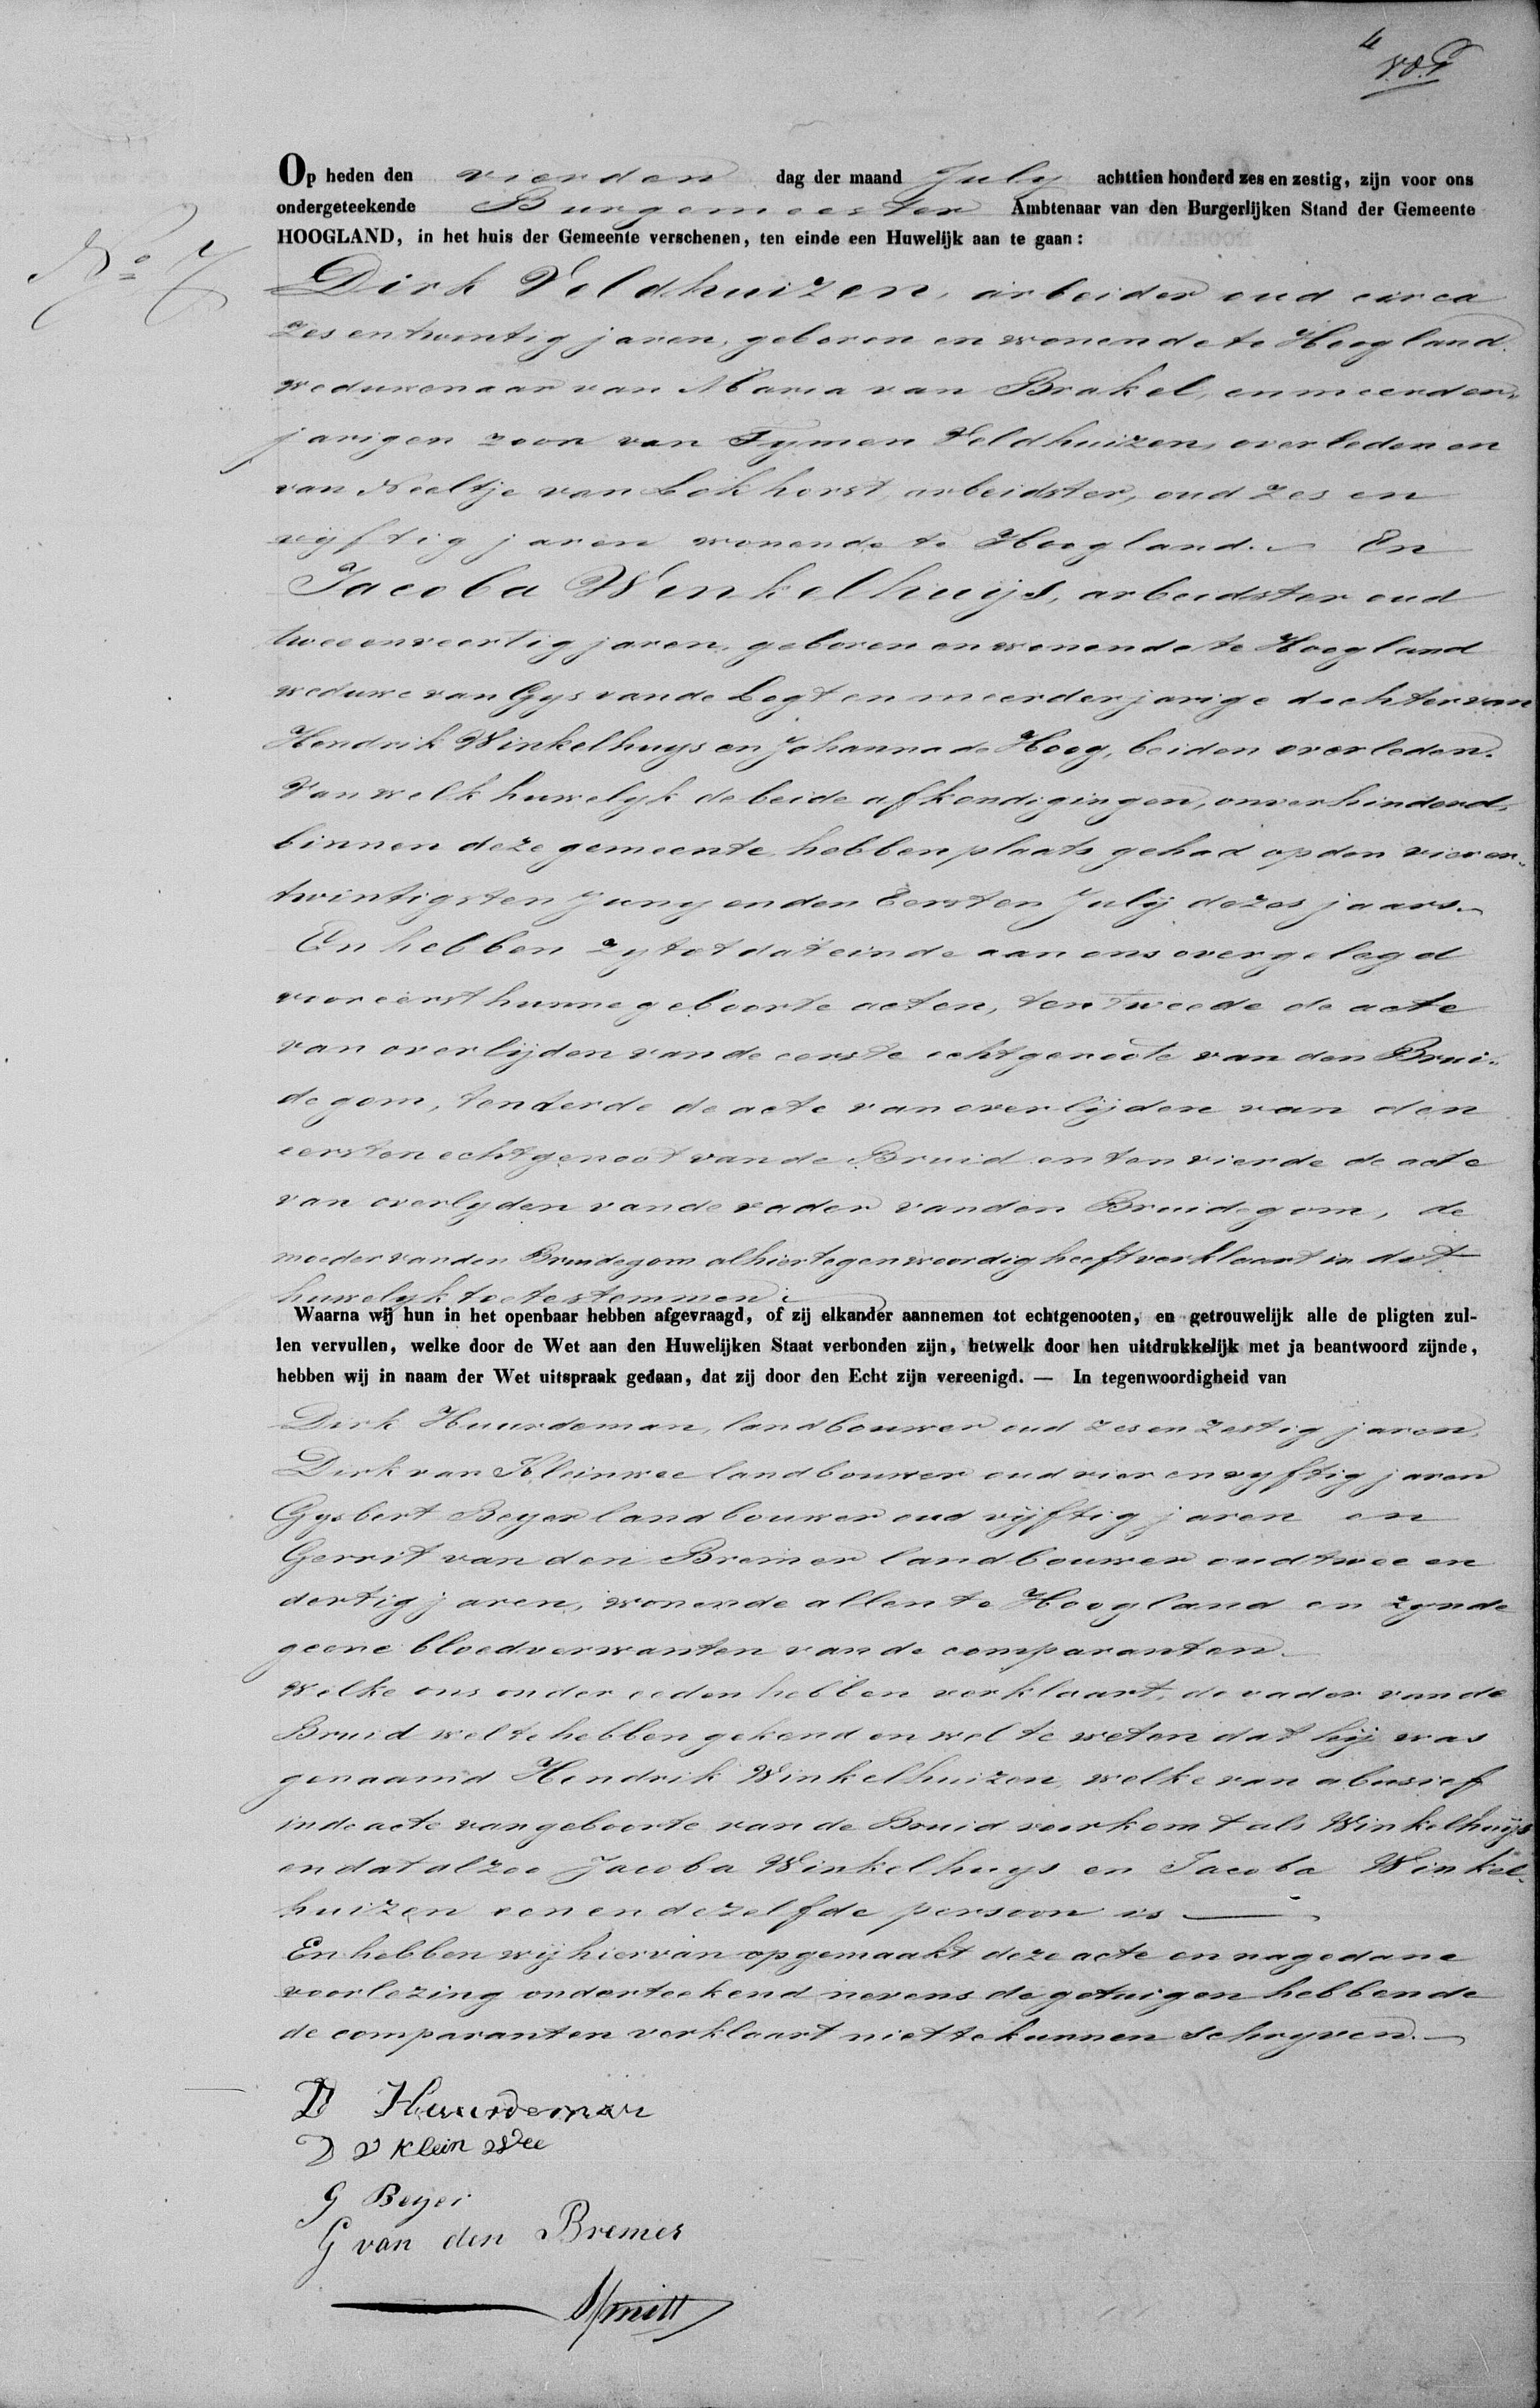 4
Op heden den vierden dag der maand July achttien honderd zes en zestig, zijn voor ons
ondergeteekende Burgemeester Ambtenaar van den Burgerlijken Stand der Gemeente
HOOGLAND, in het huis der Gemeente verschenen, ten einde een Huwelijk aan te gaan:
No 7
Dirk Veldhuizen, arbeider oud circa
zes en twintig jaren, geboren en wonende te Hoogland.
weduwenaar van Maria van Brakel, en meerder-
jarigen zoon van Tymen Veldhuizen, overleden en
van Neeltje van Lokhorst, arbeidster, oud zes en
vijftig jaren wonende te Hoogland. En
Jacoba Winkelhuijs, arbeidster oud
twee en veertig jaren, geboren en wonende te Hoogland
weduwe van Gys van de Legt en meerderjarige dochter van
Hendrik Winkelhuys en Johanna de Hoog, beiden overleden.
Van welk huwelyk de beide afkondigingen, onverhinderd,
binnen deze gemeente, hebben plaats gehad op den vier en
twintigsten Juny en den Eersten July dezes jaars.
En hebben zy tot dat einde aan ons overgelegd
voor eerst hunne geboorte acten, ten Tweede de acte
van overlijden van de eerste echtgenoote van den Brui-
degom, ten derde de acte van overlijden van den
eersten echtgenoot van de Bruid en ten vierde de acte
van overlyden van de vader van den Bruidegom, de
moeder van den Bruidegom alhier tegenwoordig heeft verklaart in dit
huwelyk toe te stemmen.
Waarna wij hun in het openbaar hebben afgevraagd, of zij elkander aannemen tot echtgenooten, en getrouwelijk alle de pligten zul-
len vervullen, welke door de Wet aan den Huwelijken Staat verbonden zijn, hetwelk door hen uitdrukkelijk met ja beantwoord zijnde,
hebben wij in naam der Wet uitspraak gedaan, dat zij door den Echt zijn vereenigd. — In tegenwoordigheid van
Dirk Huurdeman, landbouwer oud zes en zestig jaren,
Dirk van Kleinwee landbouwer oud vier en vyftig jaren
Gysbert Beyer landbouwer oud vijftig jaren en
Gerrit van den Bremer landbouwer oud twee en
dertig jaren, wonende allen te Hoogland en zynde
geene bloedverwanten van de comparanten.
Welke ons onder eeden hebben verklaart, de vader van de
Bruid wel te hebben gekend en wel te weten dat hij was
genaamd Hendrik Winkelhuizen, welke van abusief
in de acte van geboorte van de Bruid voorkomt als Winkelhuijs
en dat alzoo Jacoba Winkelhuys en Jacoba Winkel-
huizen een en dezelfde persoon is
En hebben wij hiervan opgemaakt deze acte en na gedane
voorlezing onderteekend nevens de getuigen hebbende
de comparanten verklaart niet te kunnen schryven.
D Huurdeman
D V Klein Wee
G Beyer
G van den Bremer